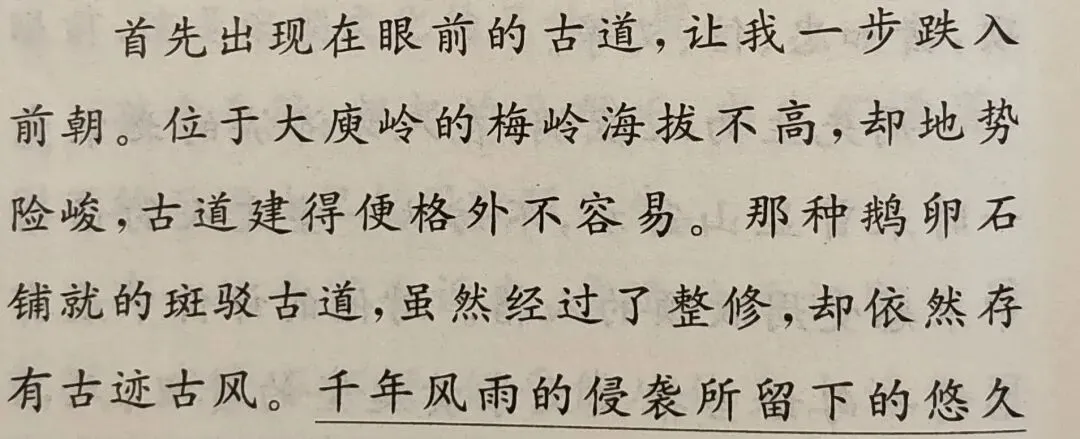 首先出现在眼前的古道，让我一步跌入
前朝。位于大庾岭的梅岭海拔不高，却地势
险峻，古道建得便格外不容易。那种鹅卵石
铺就的斑驳古道，虽然经过了整修，却依然存
有古迹古风。千年风雨的侵袭所留下的悠久